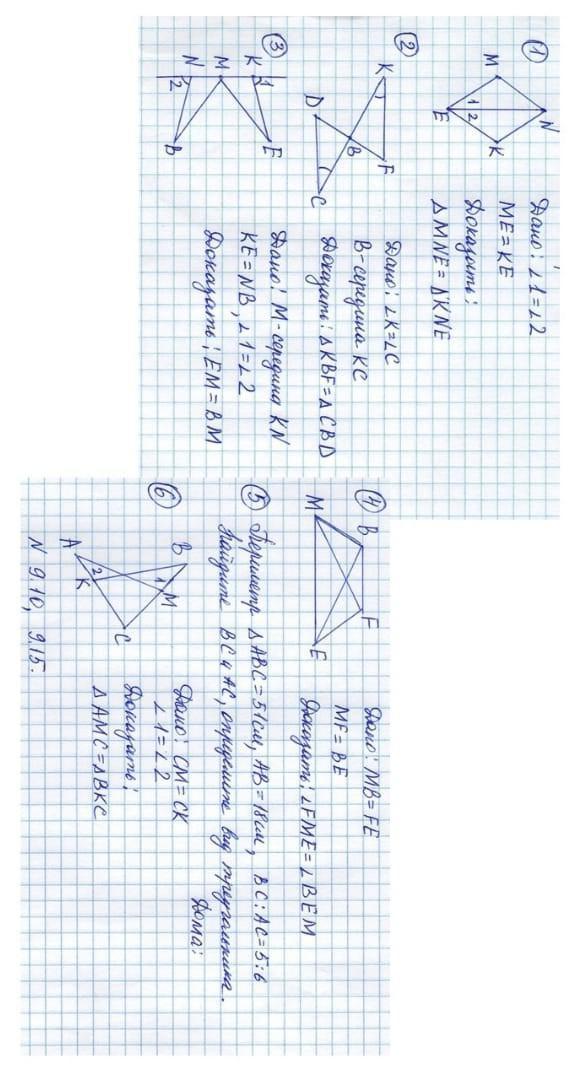 1
M
N
E
K
1
2
Дано: ∠1=∠2
ME=KE
Доказать:
ΔMNE=ΔKNE
2
K
F
B
D
C
Дано: ∠K=∠C
B-середина KC
Доказать: ΔKBF=ΔCBD
3
K
M
N
1
2
E
B
Дано: M-середина KN
KE=NB, ∠1=∠2
Доказать: EM=BM
4
B
F
M
E
Дано: MB=FE
MF=BE
Доказать: ∠FME=∠BEM
5 Периметр ΔABC=51см, AB=18см, BC:AC=5:6
Найдите BC и AC, определите вид треугольника.
Дома:
6
B
M
A
K
C
1
2
Дано: CM=CK
∠1=∠2
Доказать:
ΔAMC=ΔBKC
N 9.10, 9.15.